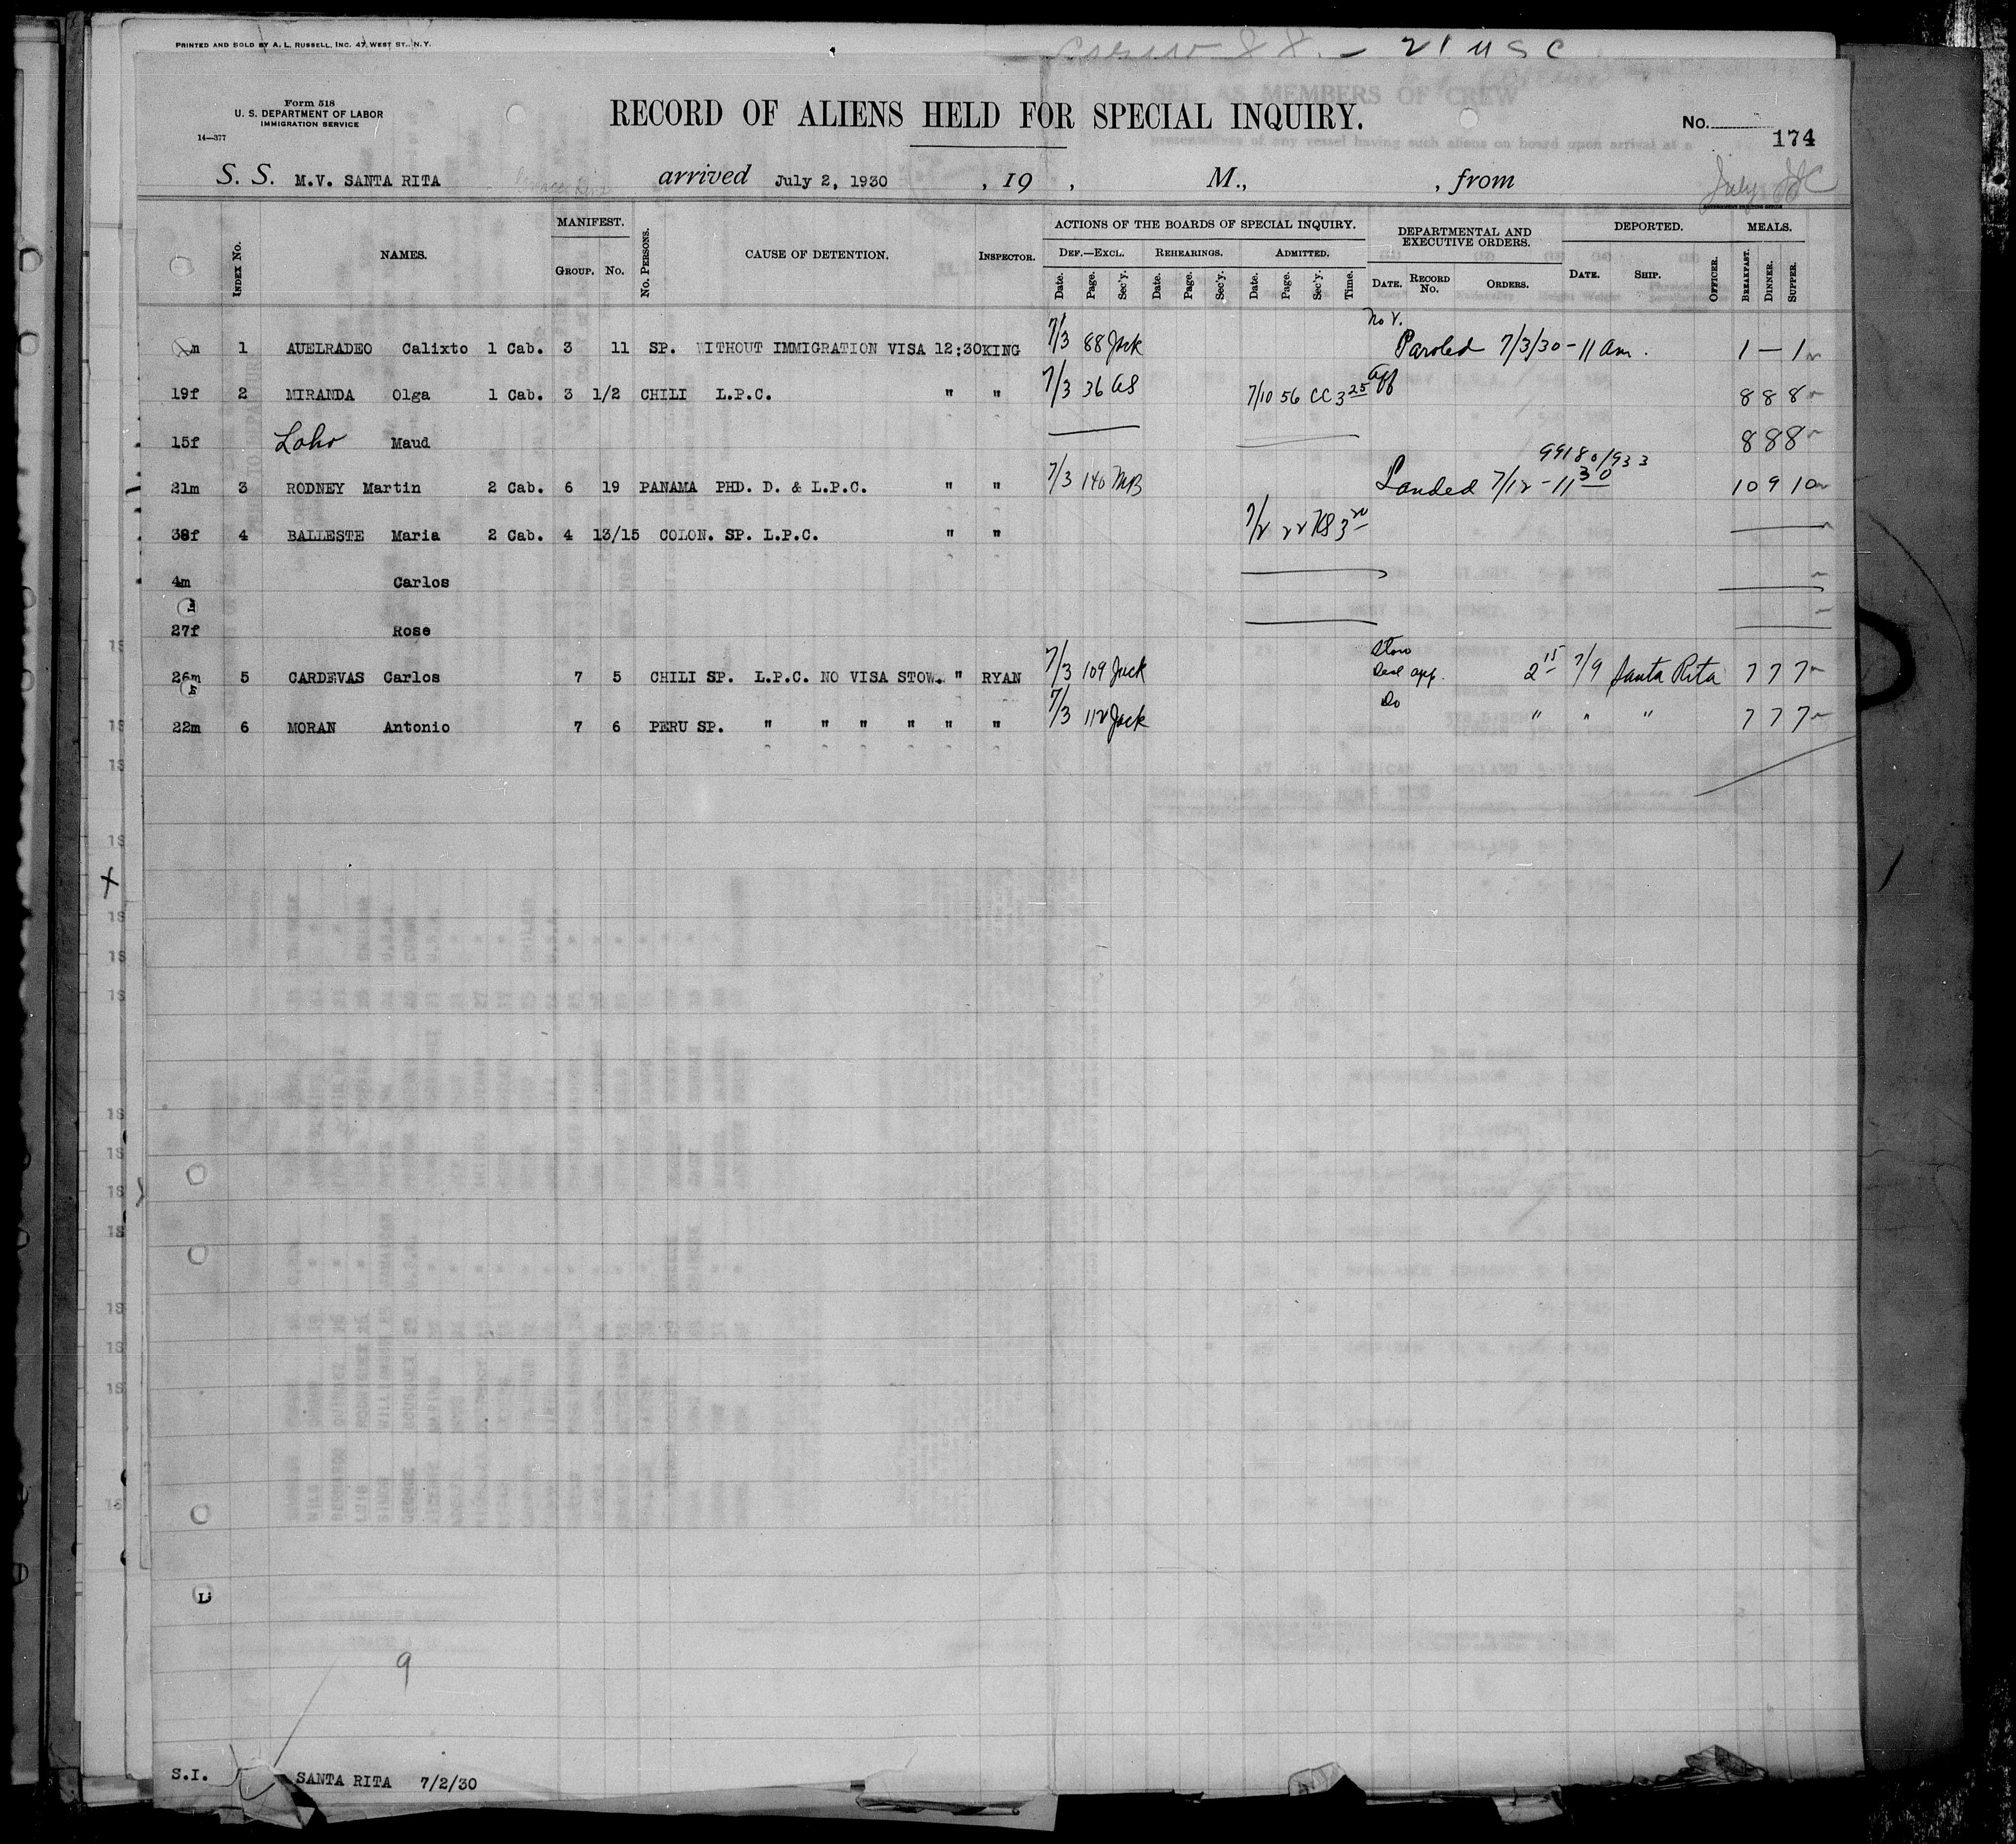 PRINTED AND SOLD BY A. L. RUSSELL, INC. 47 WEST ST., N.Y.
88. - 21 USC
Form 518
U. S. DEPARTMENT OF LABOR
IMMIGRATION SERVICE
14—377
RECORD OF ALIENS HELD FOR SPECIAL INQUIRY.
No. 174
S. S. M.V. SANTA RITA arrived July 2, 1930 , 19 , M., , from
July
INDEX No. NAMES. MANIFEST. GROUP. No. No. PERSONS. CAUSE OF DETENTION. INSPECTOR. ACTIONS OF THE BOARDS OF SPECIAL INQUIRY. DEPARTMENTAL AND EXECUTIVE ORDERS. DEPORTED. MEALS.
DEF.—EXCL. REHEARINGS. ADMITTED.
Date. Page. Sec'y. Date. Page. Sec'y. Date. Page. Sec'y. Time. DATE. RECORD No. ORDERS. DATE. SHIP. OFFICER. BREAKFAST. DINNER. SUPPER.
No V.
m 1 AUELRADEO Calixto 1 Cab. 3 11 SP. WITHOUT IMMIGRATION VISA 12:30 KING 7/3 88 Jack Paroled 7/3/30 - 11 am. 1 — 1
19f 2 MIRANDA Olga 1 Cab. 3 1/2 CHILI L.P.C. " " 7/3 36 AS 7/10 56 CC 3 25 App 8 8 8
15f Loho Maud 8 8 8
99180/933
21m 3 RODNEY Martin 2 Cab. 6 19 PANAMA PHD. D. & L.P.C. " " 7/3 140 MB Landed 7/12 - 11 30 10 9 10
38f 4 BALLESTE Maria 2 Cab. 4 13/15 COLON. SP. L.P.C. " " 7/2 22 KS 3 20
4m Carlos
27f Rose
Stow
26m 5 CARDEVAS Carlos 7 5 CHILI SP. L.P.C. NO VISA STOW. " RYAN 7/3 109 Jack app. 2 15 7/9 Santa Rita 7 7 7
Do
22m 6 MORAN Antonio 7 6 PERU SP. " " " " " " 7/3 112 Jack " " " 7 7 7
9
S.I. SANTA RITA 7/2/30